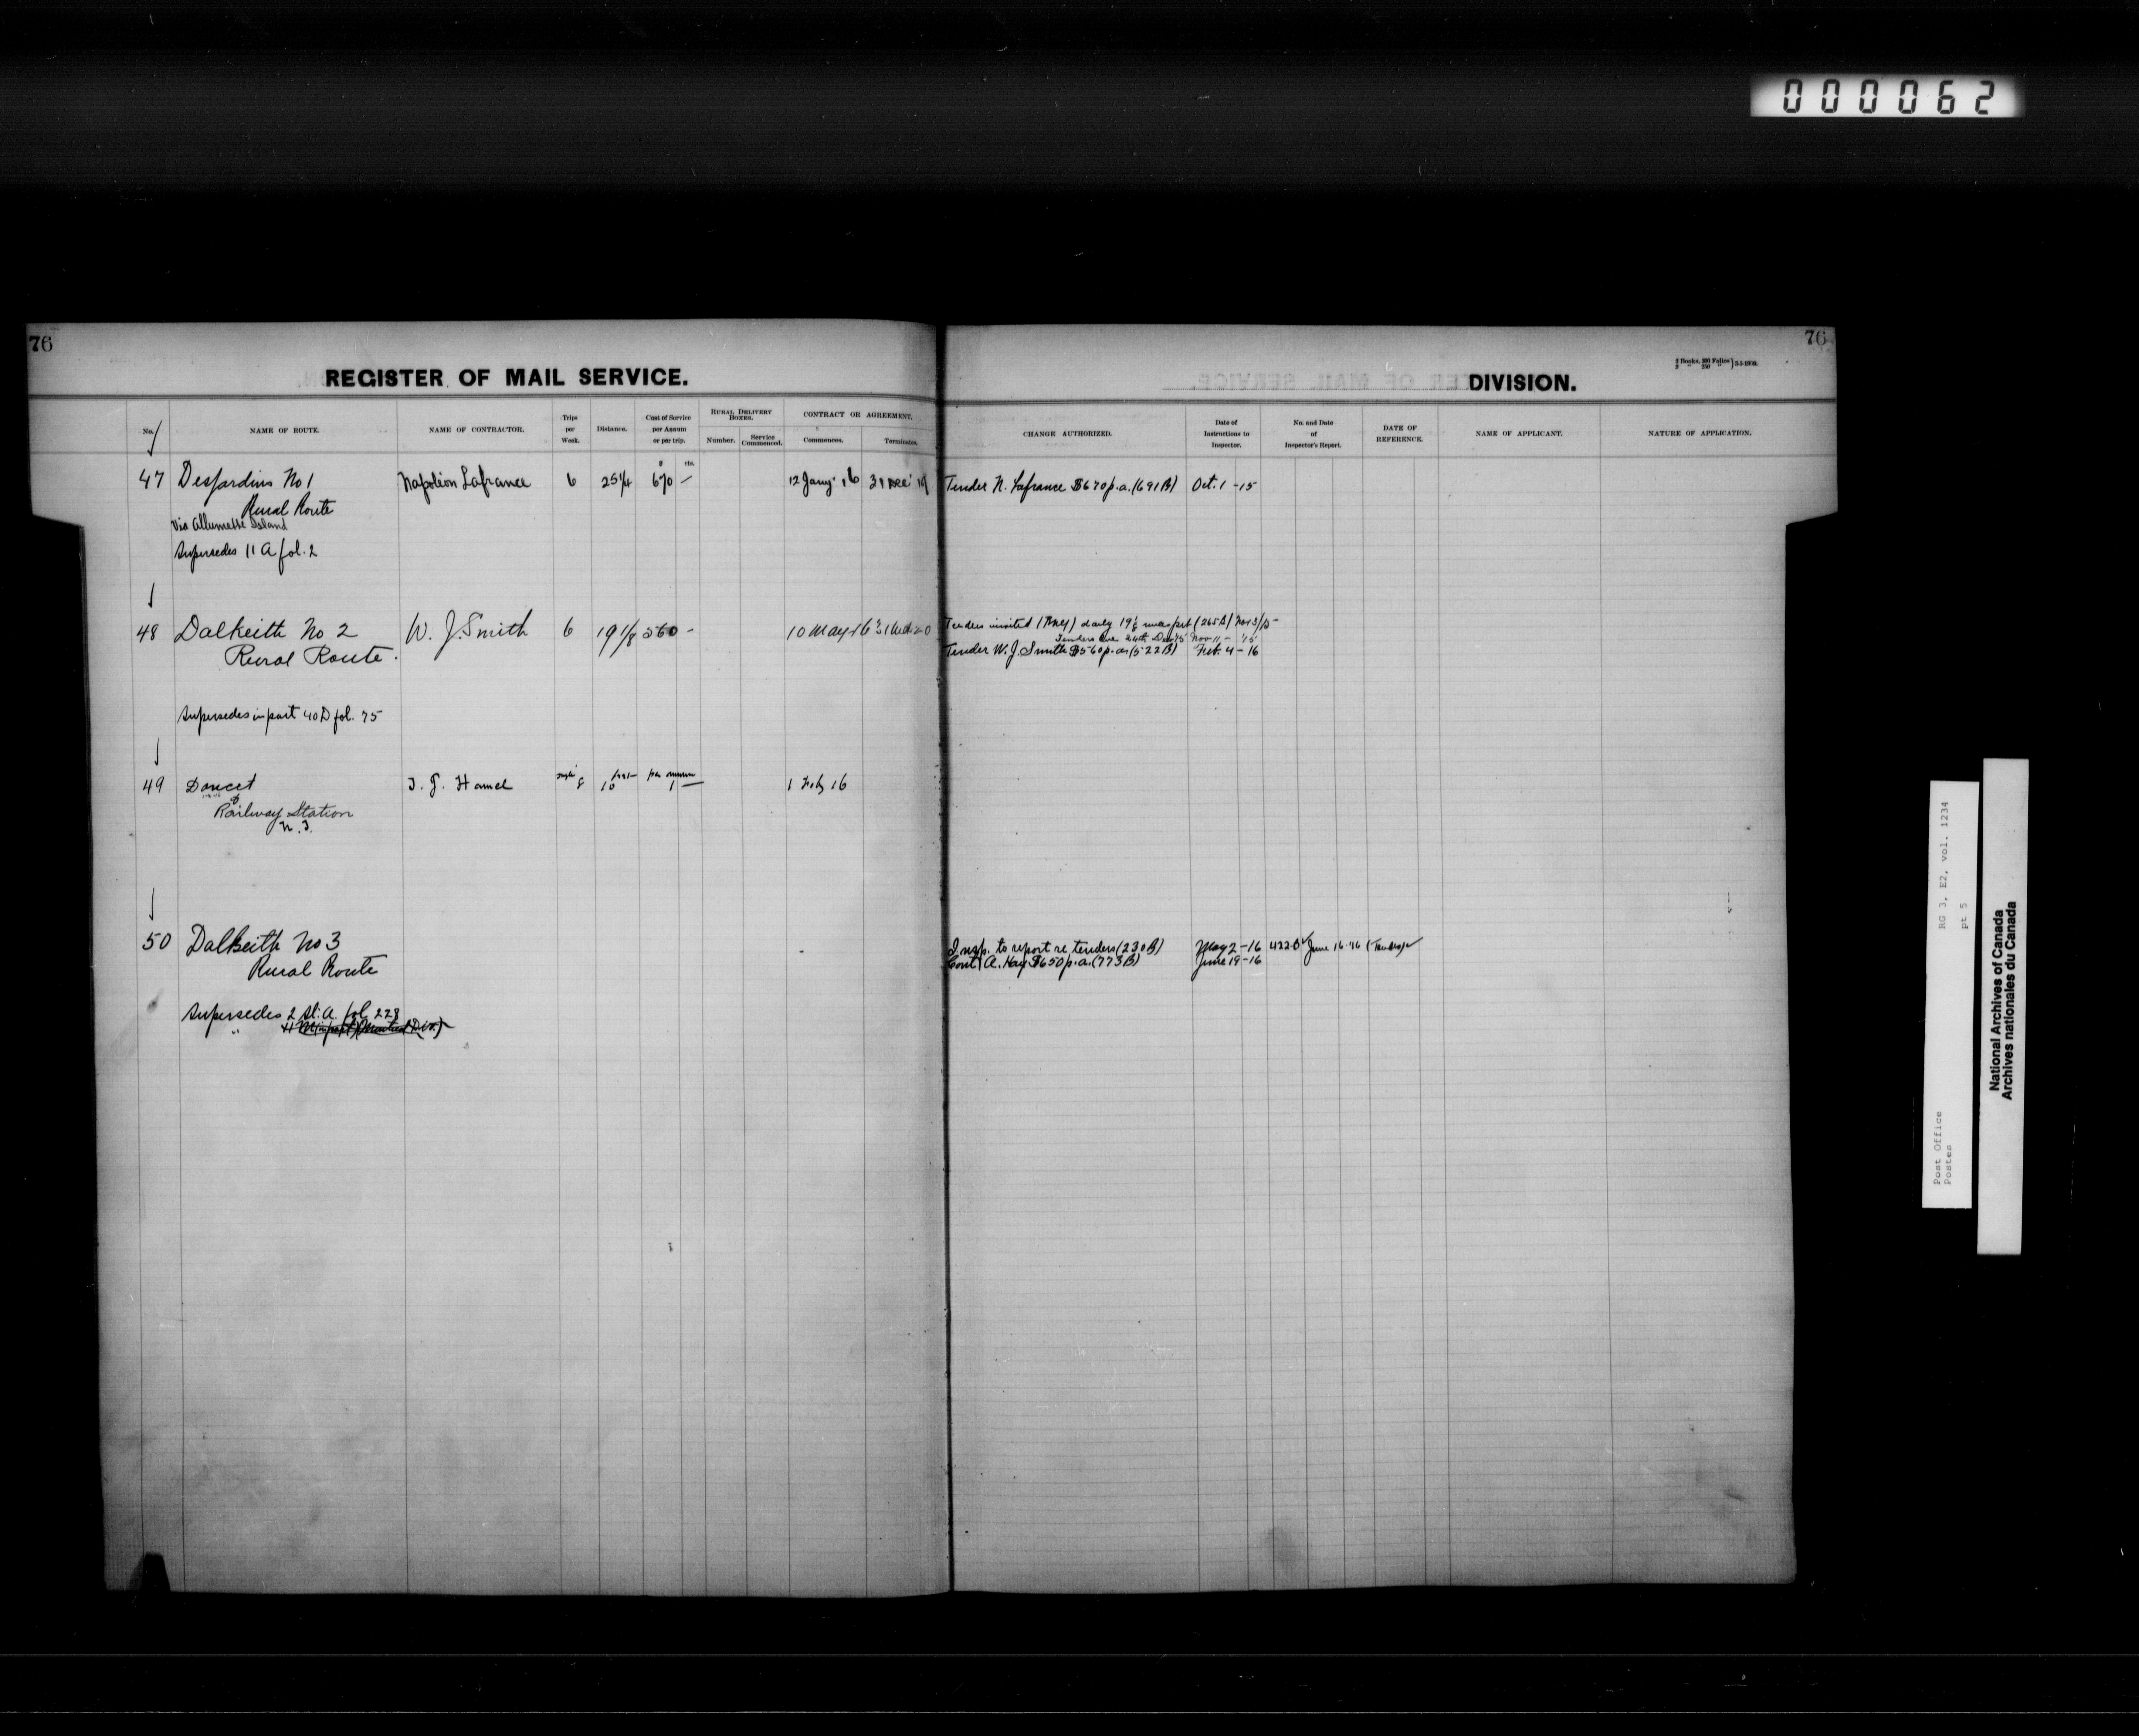 000062
76
REGISTER OF MAIL SERVICE.
No.
NAME OF ROUTE.
NAME OF CONTRACTOR.
Trips per Week.
Distance.
Cost of Service per Annum or per trip.
RURAL DELIVERY BOXES.
Number.
Service Commenced.
CONTRACT OR AGREEMENT.
Commences.
Terminates.
$ cts.
47 Desjardins No 1 Napoléon Lafrance 6 25 1/4 670 — 12 Jany. 16 31 Dec. 19
Rural Route
Via Allumette Island
Supersedes 11 A fol. 2
48 Dalkeith No 2 W. J. Smith 6 19 1/8 560 - 10 May 16
Rural Route.
Supersedes in part 40 D fol. 75
49 Doucet J. J. Hamel 1 — 1 Feby 16
&
Railway Station
50 Dalkeith No 3
Rural Route
Supersedes 2 fol. 228
76
DIVISION.
CHANGE AUTHORIZED.
Date of Instructions to Inspector.
No. and Date of Inspector's Report.
DATE OF REFERENCE.
NAME OF APPLICANT.
NATURE OF APPLICATION.
Tender N. Lafrance $670 p.a. (691 B) Oct. 1 - 15
Tenders invited daily 19 1/8 (265 B) Nov 3/15
Tenders due 24th Dec 15 Nov 11 - 15
Tender W. J. Smith $560 p.a. (522 B) Feb. 4 - 16
Insp. to report re tenders (230 B) May 2 - 16 422 June 16 '16
Cont A. Hay $650 p.a. (773 B) June 19 - 16
RG 3, E2, vol. 1234
pt 5
Post Office
Postes
National Archives of Canada
Archives nationales du Canada